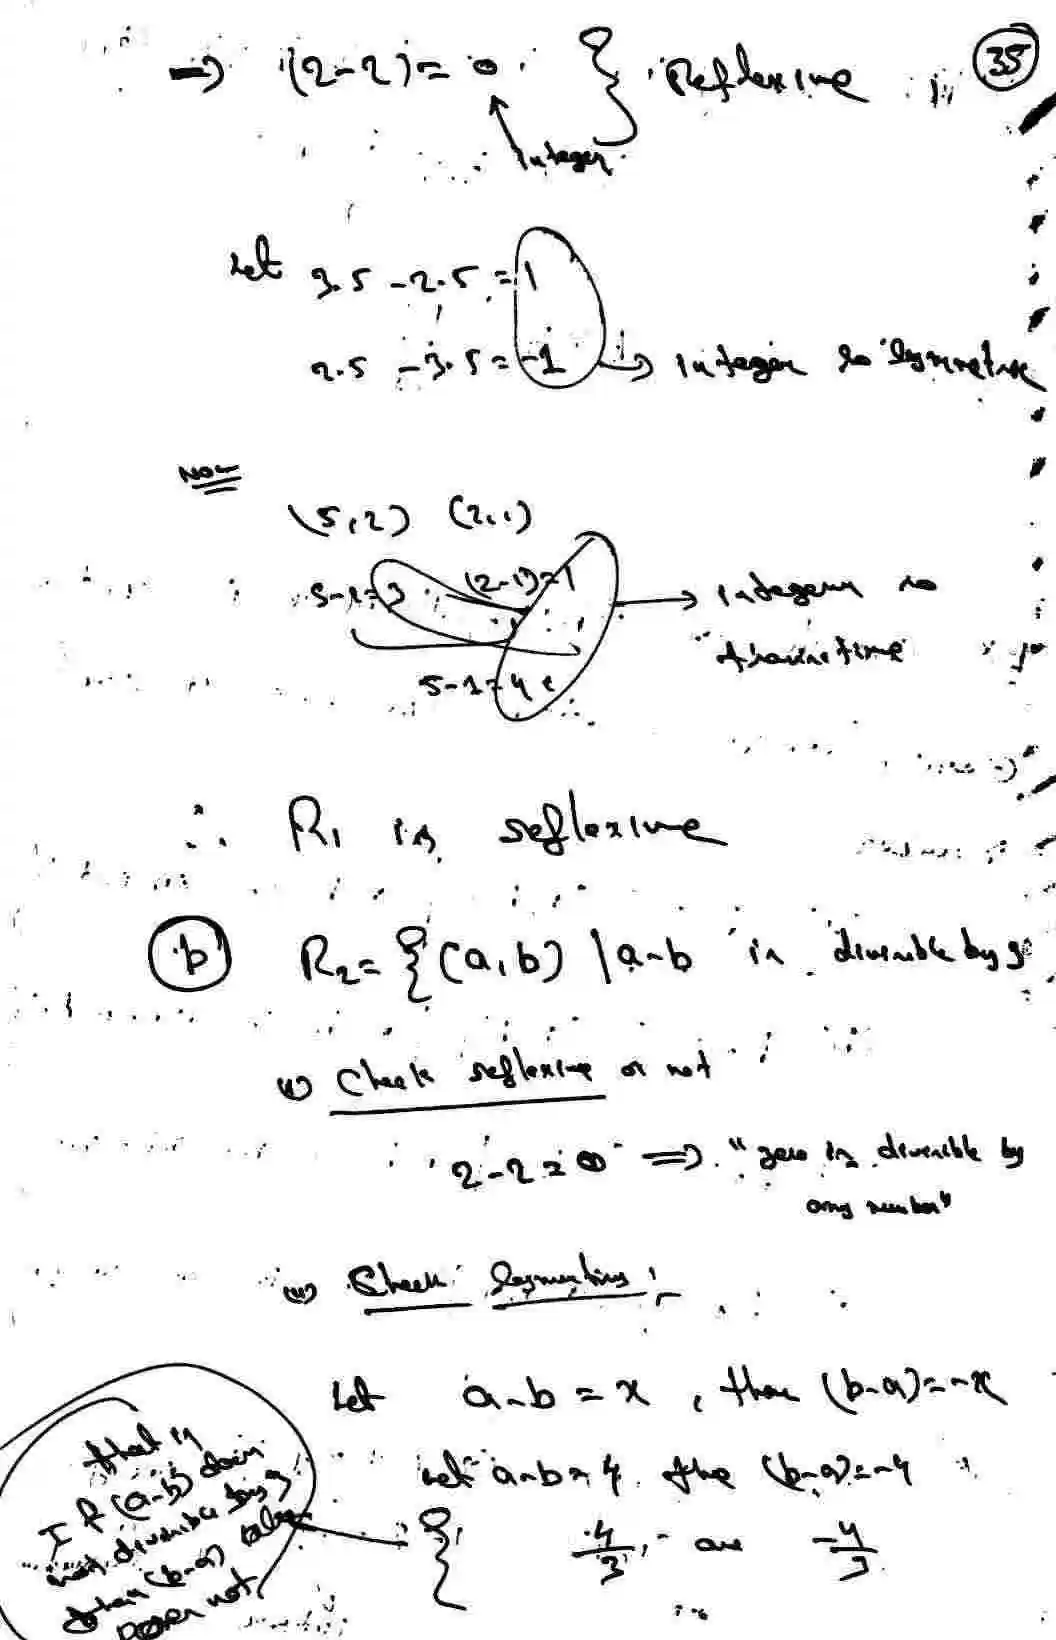 35
⇒ (2-2) = 0 } Reflexive
Integer
Let 3.5 - 2.5 = 1
2.5 - 3.5 = -1 → integer so symmetric
Now
(5,2) (2,1)
5-2=3 (2-1)=1 → integer so
5-1=4
∴ R₁ is reflexive
(b) R₂ = {(a,b) | a-b is divisible by 3
(i) Check reflexive or not
2-2=0 ⇒ "zero is divisible by
any number"
(ii) Check Symmetric :-
Let a-b = x , then (b-a)=-x
Let a-b=4 the (b-a)=-4
{ 4/3 , are -4/3
that is
If (a-b) does
not divisible by 3
then (b-a) also
does not